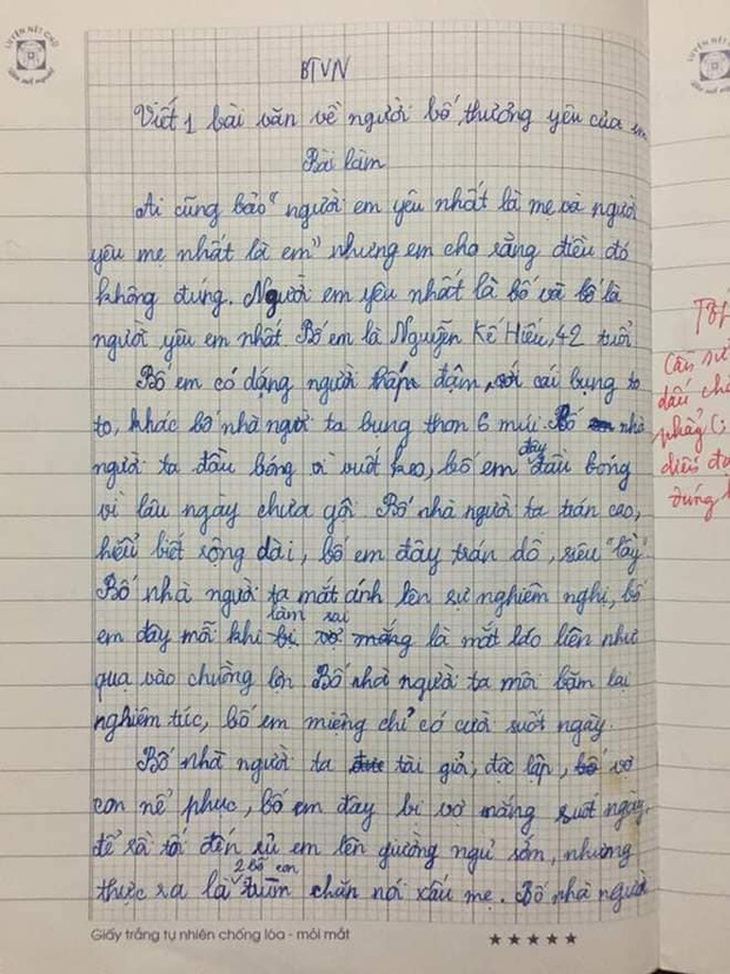 LUYỆN NÉT CHỮ
BTVN
Viết 1 bài văn về người bố thương yêu của em
Bài làm
Ai cũng bảo "người em yêu nhất là mẹ và người
yêu mẹ nhất là em" nhưng em cho rằng điều đó
không đúng. Người em yêu nhất là bố và bố là
người yêu em nhất. Bố em là Nguyễn Kế Hiếu, 42 tuổi
Bố em có dáng người thấp đậm, với cái bụng to
to, khác bố nhà người ta bụng thon 6 múi. Bố nhà
người ta đầu bóng vì vuốt keo, bố em đây đầu bóng
vì lâu ngày chưa gội. Bố nhà người ta trán cao,
hiểu biết rộng dài, bố em đây trán dô, siêu "lầy".
Bố nhà người ta mắt ánh lên sự nghiêm nghị, bố
em đây mỗi khi làm sai là mắt láo liên như
quạ vào chuồng lợn. Bố nhà người ta môi bặm lại
nghiêm túc, bố em miệng chỉ có cười suốt ngày.
Bố nhà người ta tài giỏi, độc lập, vợ
con nể phục, bố em đây bị vợ mắng suốt ngày,
để rồi tối đến rủ em lên giường ngủ sớm, nhưng
thực ra là 2 bố con trùm chăn nói xấu mẹ. Bố nhà người
Giấy trắng tự nhiên chống lóa - mỏi mắt
Cần
dấu
phẩy (;